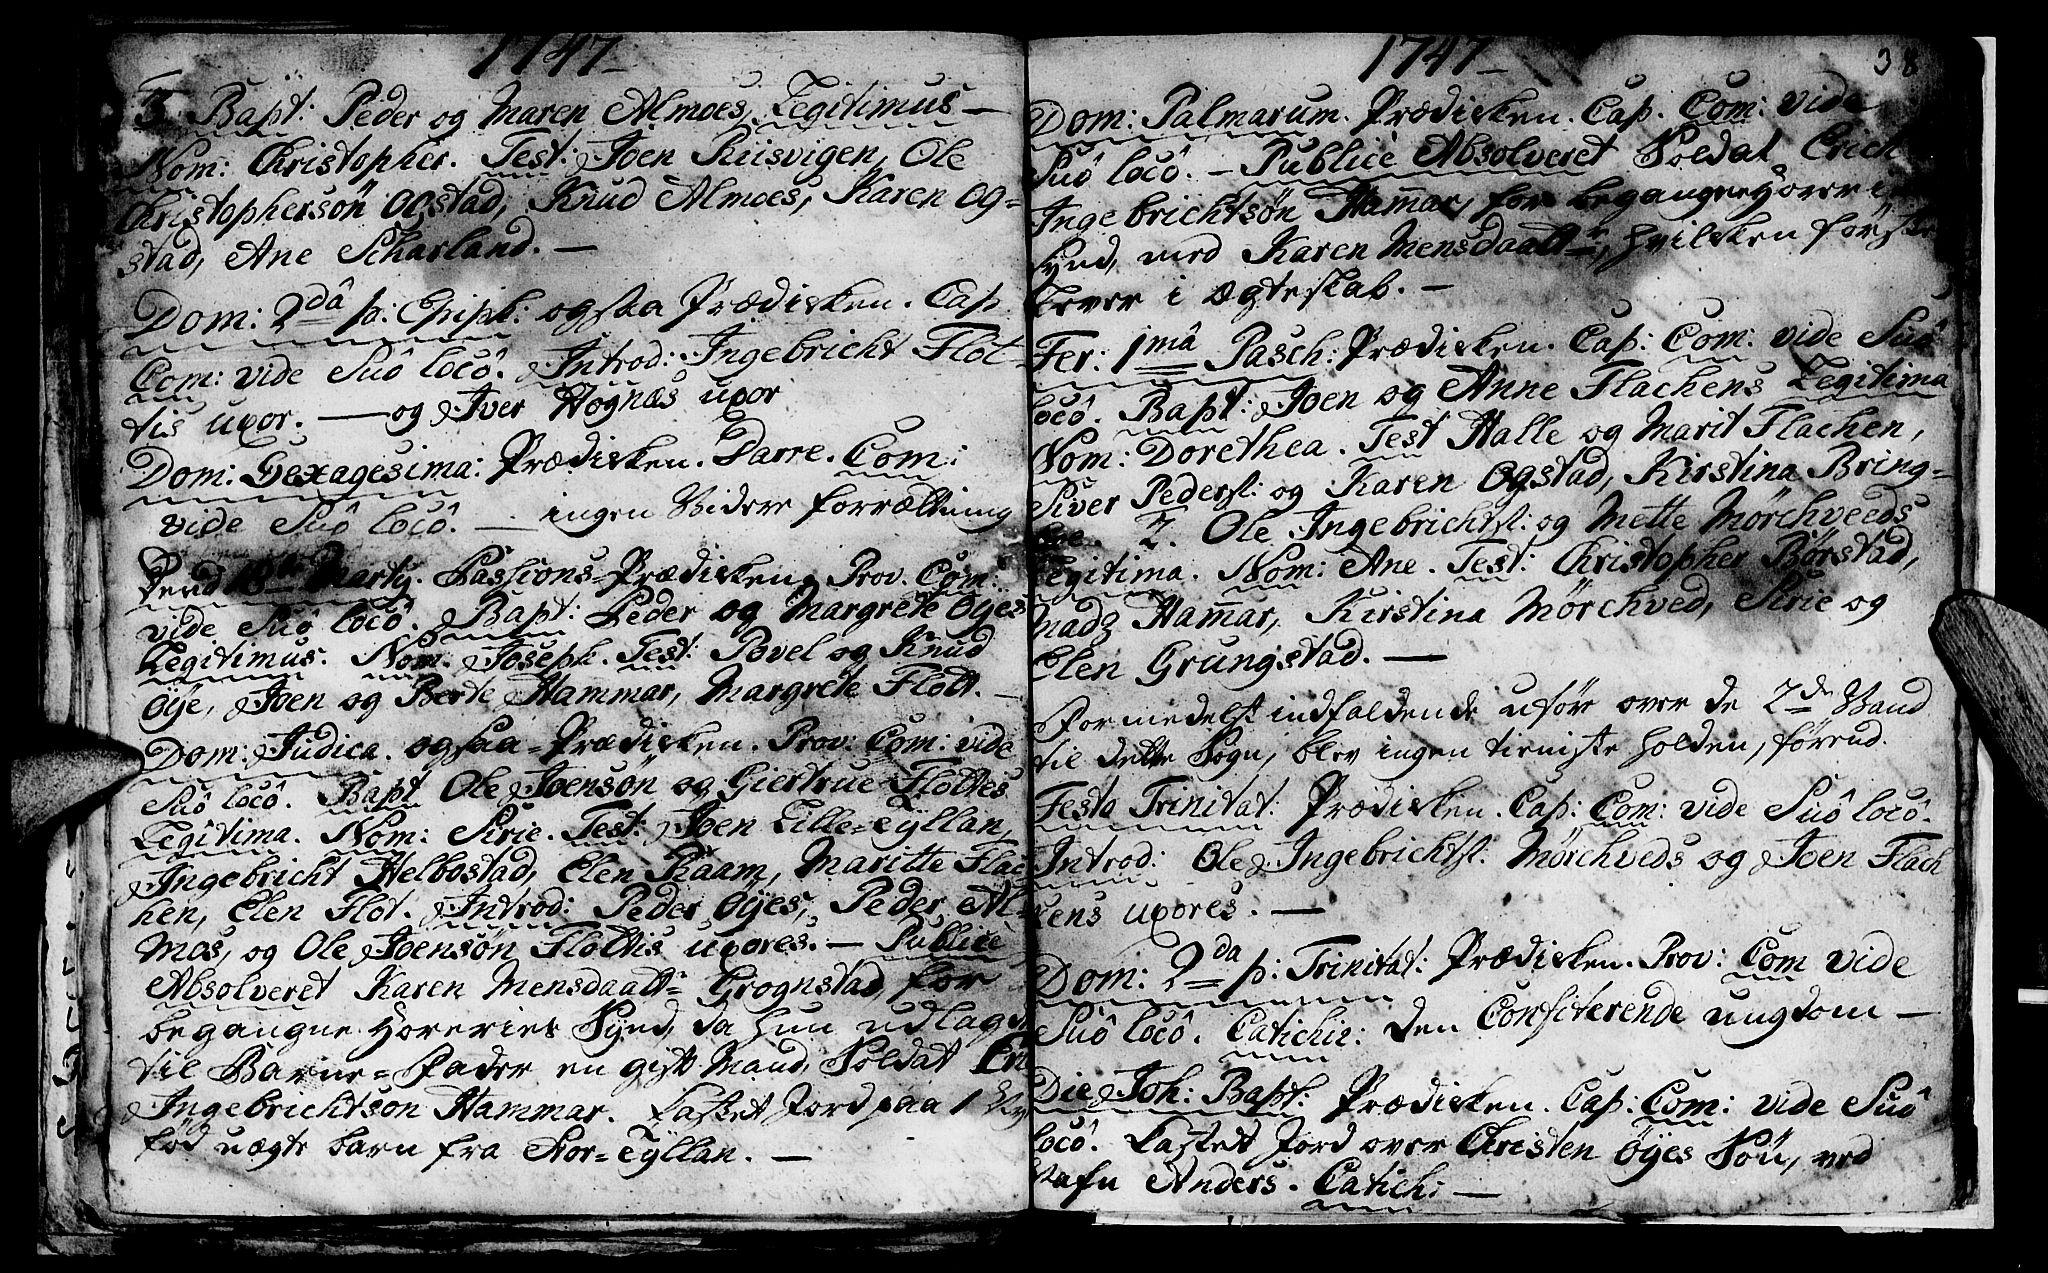 1747
3. Bapt: Peder og Maren Almoes Legitimus —
Nom: Christopher. Test: Joen Riisvigen, Ole
Christophersön Ogstad, Knud Almoes, Karen Og=
stad, Ane Scharland. —
Dom: 2dâ p: Epiph: ogsaa Prædicken. Cap
Com: vide Suô locô. Introd: Ingebricht Flöt-
tis uxor. — og Iver Hognæs uxor
Dom: Sexagesima: Prædicken. Darre. Com:
vide Suô locô. — ingen Videre forrættning
Dend 18de Marty. Passions=Prædicken. Prov. Com:
vide Suô locô. Bapt: Peder og Margrete Öyes
Legitimus. Nom. Joseph. Test: Povel og Knud
Öye, Joen og Berte Hammar, Margrete Flött. —
Dom: Judica. ogsaa Prædicken. Prov: Com: vide
Suô locô. Bapt Ole Joensön og Giertrue Flöttes
Legitima. Nom: Sirie. Test: Joen Lille=Tÿllan,
Ingebricht Helbostad, Elen Raam, Maritte Flac
hen, Elen Flöt. Introd: Peder Öÿes, Peder Al=
mos, og Ole Joensön Flöttis uxores. — Publice
Absolveret Karen Mensdaatr Grognstad for
begangne Horeries Synd, da hun udlagde
til Barne=Fader en gift Mand, Soldat
Ingebrichtsön Hammar. Castet Jord paa 1
föd uægte barn fra Stor=Tÿllan. —
1747
38
Dom: Palmarum. Prædicken. Cap. Com: vide
Suô locô. — Publice Absolveret Soldat Erich
Ingebrichtsön Hammar, for begangne Horerie
synd, med Karen Mensdaattr, hvilcken förste
lever i ægteskab. —
Fer: 1mâ Pasch: Prædicken. Cap: Com: vide Suô
locô. Bapt: Joen og Anne Flachens Legitima
Nom: Dorethea. Test Halle og Marit Flachen,
Siver Peders: og Karen Ogstad, Kirstina Bring=
2. Ole Ingebrichts: og Mette Mörchveeds
Legitima. Nom: Ane. Test: Christopher Börstad,
Madz Hammar, Kirstina Mörchved, Sirie og
Elen Grungstad. —
Formedelst indfaldende uföre over de 2de Vand
til dette Sogn, blev ingen tieniste holden, förend.
Festo Trinitat: Prædicken. Cap: Com: vide Suô locô.
Introd: Ole Ingebrichts: Mörchveds og Joen Flach
kens uxores. —
Dom: 2da p: Trinitat: Prædicken. Prov: Com vide
Suô locô. Catichiz: den Confiterende ungdom —
Die Joh: Bapt: Prædicken. Cap: Com: vide Suô
locô. Castet Jord over Christen Öÿes Sön, ved
Nafn Anders. Catich: —